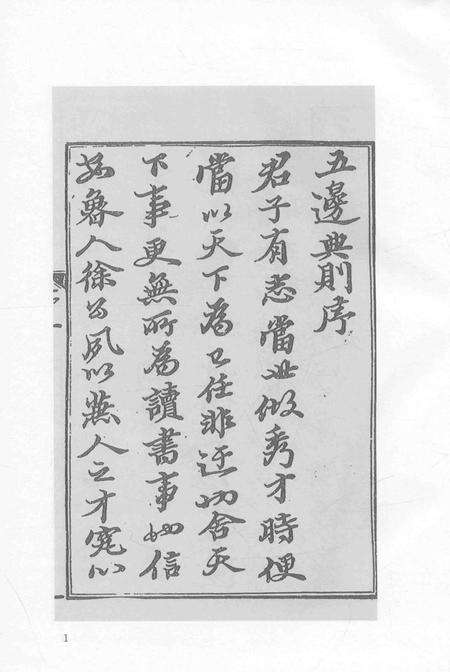 五邊典則序
君子有志當世做秀才時便
當以天下為己任非迂也舍天
下事更無所為讀書事如信
如魯人徐公夙以兼人之才究心
1